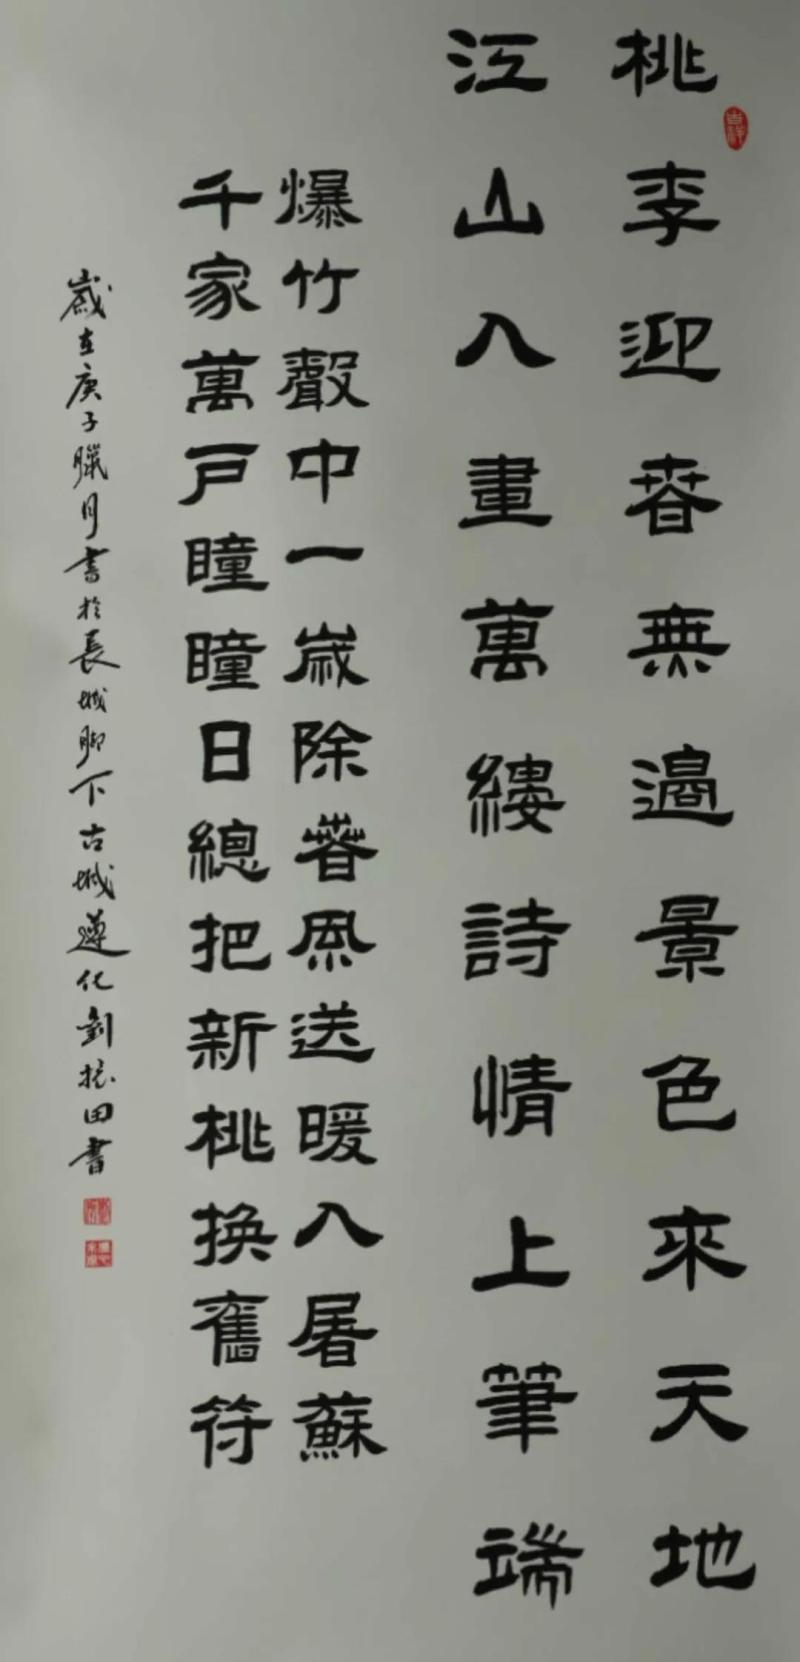 桃李迎春無邊景色來天地
江山入畫萬縷詩情上筆端
爆竹聲中一歲除春風送暖入屠蘇
千家萬戶瞳瞳日總把新桃換舊符
歲在庚子臘月書於長城腳下古城遵化劉振田書
吉祥